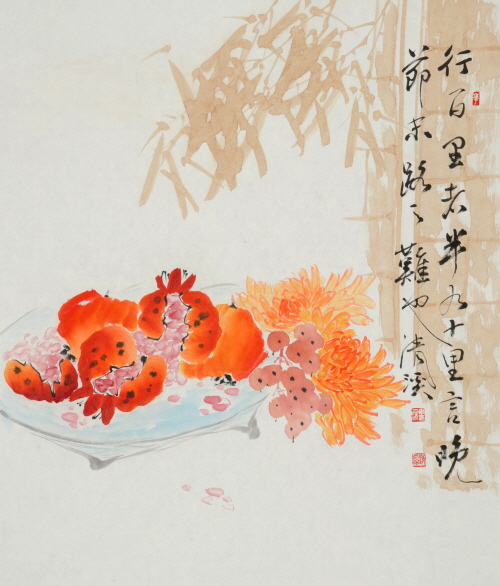 行百里者半九十里言晚
節末路之難也